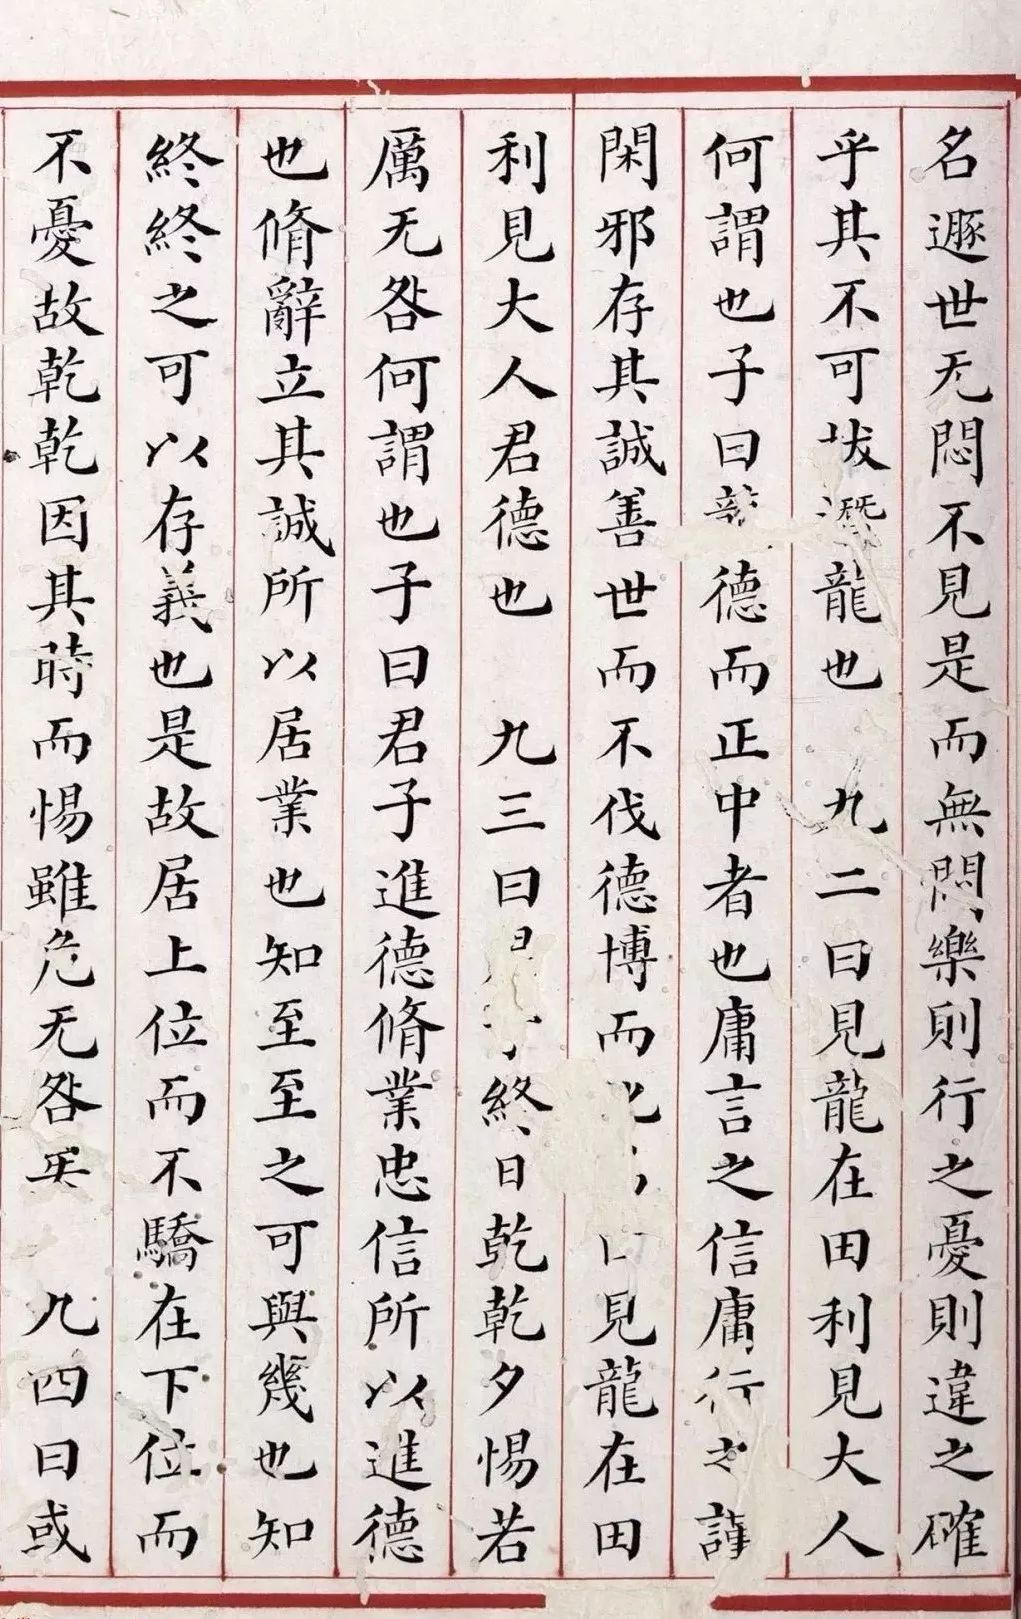 名遯世无悶不見是而無悶樂則行之憂則違之確
乎其不可拔潛龍也　九二曰見龍在田利見大人
何謂也子曰德而正中者也庸言之信庸行之謹
閑邪存其誠善世而不伐德博而見龍在田
利見大人君德也　九三曰終日乾乾夕惕若
厲无咎何謂也子曰君子進德脩業忠信所以進德
也脩辭立其誠所以居業也知至至之可與幾也知
終終之可以存義也是故居上位而不驕在下位而
不憂故乾乾因其時而惕雖危无咎矣　九四曰或